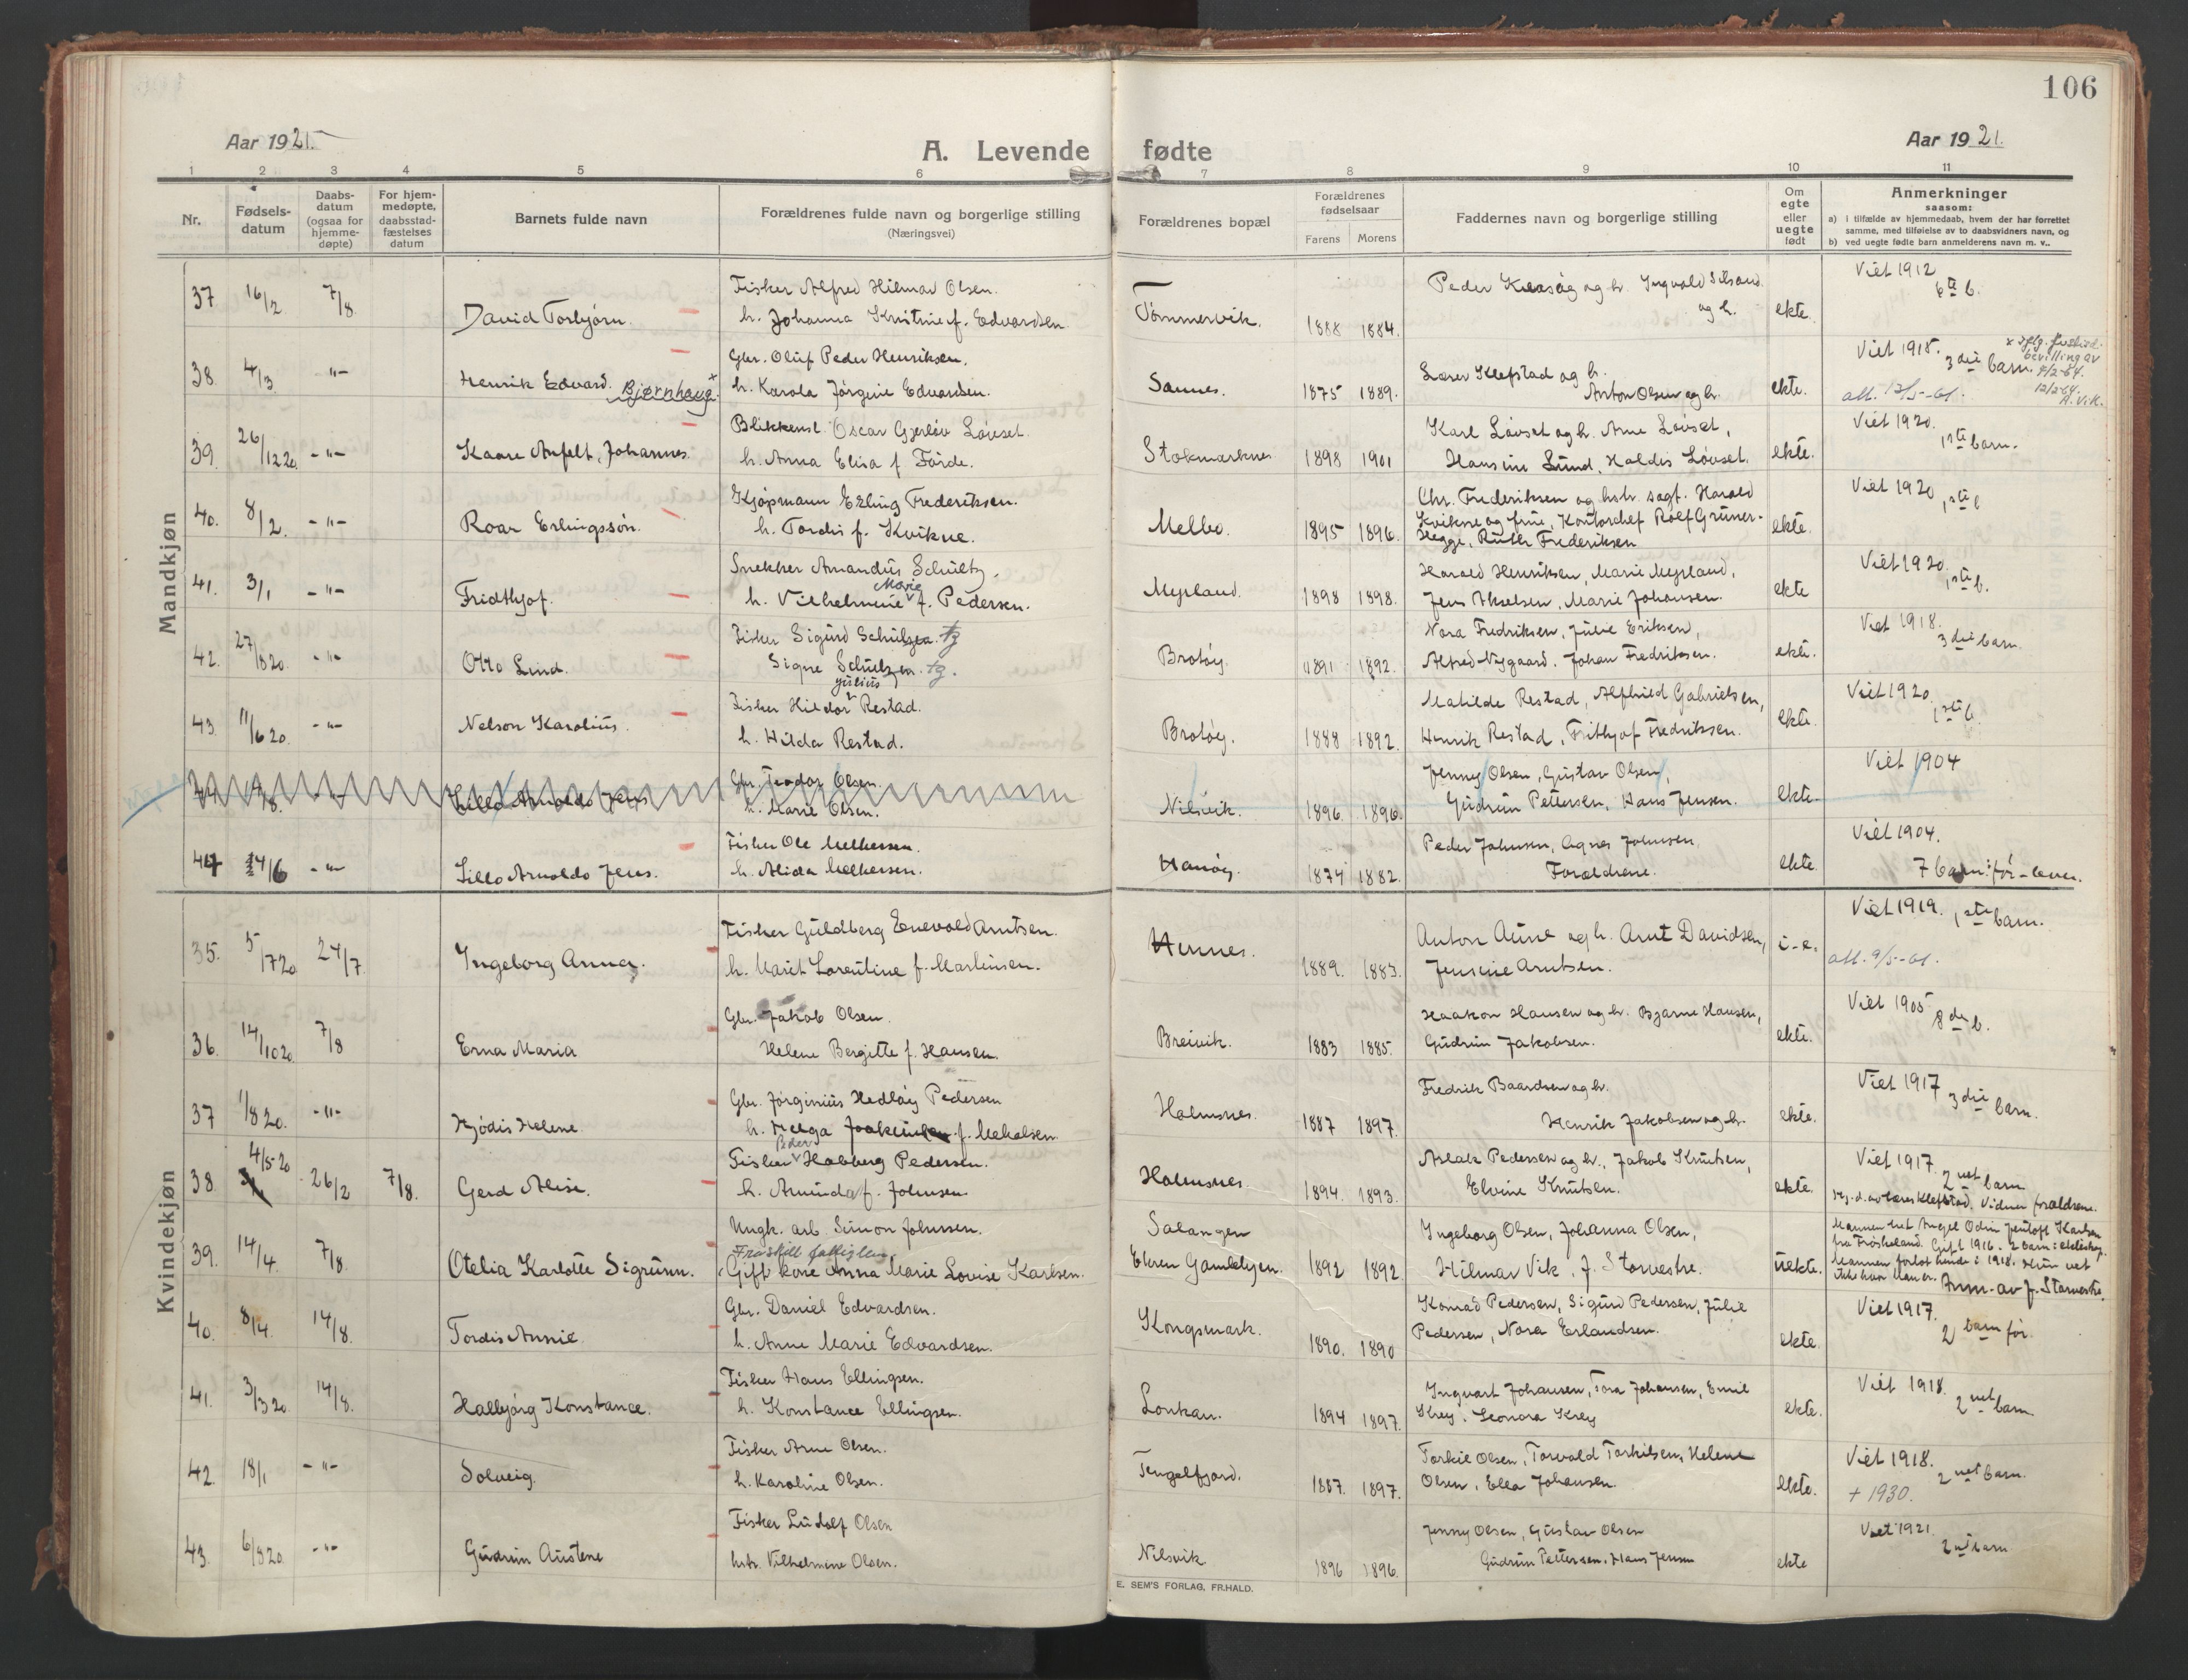 106
Aar 1921.
A. Levende fødte
Aar 1921.
1 2 3 4 5 6 7 8 9 10 11
Nr.
Fødsels-
datum
Daabs-
datum
(ogsaa for
hjemme-
døpte)
For hjem-
medøpte,
daabsstad-
fæstelses
datum
Barnets fulde navn
Forældrenes fulde navn og borgerlige stilling
(Næringsvei)
Forældrenes bopæl
Forældrenes
fødselsaar
Farens Morens
Faddernes navn og borgerlige stilling
Om
egte
eller
uegte
født
Anmerkninger
saasom:
a) i tilfælde av hjemmedaab, hvem der har forrettet
samme, med tilføielse av to daabsvidners navn, og
b) ved uegte fødte barn anmelderens navn m. v..
Mandkjøn
Fisker Alfred Hilmar Olsen. Viet 1912
37 16/2 7/8 David Torbjørn. h. Johanna Kristine f. Edvardsen Tømmervik. 1888 1884. Peder og h. Ingvald og h. ekte. 6te b.
Gbr. Oluf Peder Henriksen. Viet 1915.
38. 4/3 -"- Henrik Edvard. Bjørnhaug x h. Karola Jørgine Edvardsen. Sannes. 1875 1889. Lærer Klefstad og h. Anton Olsen og h. ekte. 3die barn. att. 12/5-61.
x iflg. bevilling av 4/2-64. 12/2-64. A.V.K.
Blikkensl. Oscar Gjerløv Løvset. Karl Løvset og h. Arne Løvset, Viet 1920.
39. 26/12 20. -"- Kaare Anfelt, Johannes. h. Anna Elisa f Førde. Stokmarknes 1898 1901 Hansine Lund, Haldis Løvset. ekte. 1ste barn.
Kjøpmann Erling Frederiksen. Chr. Frederiksen og hstr. sagf. Harald Viet 1920
40. 8/2. -"- Roar Erlingssøn. h. Tordis f. Kvikne. Melbo. 1895 1896. Kvikne og frue, Kontorchef Rolf Grüner-
Hegge, Ruth Frederiksen ekte. 1ste b
Snekker Amandus Schultz. Harald Henriksen, Marie Myrland, Viet 1920.
41. 3/1 -"- Fridthjof. h. Vilhelmine Marie f. Pedersen. Myrland. 1898 1898. Jens Akselsen, Marie Johansen. ekte 1ste b.
Fisker Sigurd Schulzen tz Nora Fredriksen, Julie Eriksen, Viet 1918.
42. 27/8 20. -"- Otto Lind. Signe Schulzen tz. Brotøy. 1891 1892. Alfred Nygaard. Johan Fredriksen. ekte. 3die barn.
Fisker Hildor Julius Restad. Matilde Restad, Alfhild Gabrielsen, Viet 1920.
43. 11/6 20. -"- Nelson Karolius. h. Hilda Restad. Brotøy. 1888 1892. Henrik Restad, Frithjof Fredriksen. ekte. 1ste b.
Gbr. Teodor Olsen. Jenny Olsen, Gustav Olsen, Viet 1904
44 -"- Lillo Arnoldo Jens h. Marie Olsen. Nilsvik. 1896. 1896. Gudrun Pettersen, Hans Jensen. ekte.
Fisker Ole Melkersen. Peder Johnsen, Agnes Johnsen, Viet 1904.
44 24/6 -"- Lillo Arnoldo Jens. h. Alida Melkersen. Hanøy. 1874 1882. Forældrene. ekte 7 barn før - lever.
Kvindekjøn
Fisker Guldberg Enevold Arntsen. Viet 1919. 1ste barn.
35. 5/7 20 24/7. Ingeborg Anna. h. Marit Lorentine f. Martinsen. Hennes. 1889. 1883. Anton Aune og h. Arnt Davidsen,
Jensine Arntsen. i-e. att. 9/5-61.
Gbr. Jakob Olsen. Haakon Hansen og h. Bjarne Hansen, Viet 1905
36. 14/10 20. 7/8 Erna Maria Helene Bergitte f. Hansen. Breivik. 1883 1885. Gudrun Jakobsen. ekte. 8de b.
Gbr. Jørginius Hedløy Pedersen Fredrik Baardsen og h. Viet 1917
37 1/8 20. -"- Hjødis Helene. h. Helga f. Mikalsen. Holmsnes. 1887 1897. Henrik Jakobsen og h. ekte. 3die barn.
Fisker Peder Hobberg Pedersen. Aslak Pedersen og h., Jakob Knutsen, Viet 1917.
38. 4/5-20 26/2 7/8. Gerd Alise. h. Aminda f. Johnsen. Holmsnes. 1894. 1893. Elvine Knutsen. ekte. 2net barn
Hj.d. av lærer Klefstad. Vidner forældrene.
Ungk. arb. Simon Johnsen. Salangen Ingeborg Olsen, Johanna Olsen,
39. 14/4. 7/8. Otelia Karlotte Sigrunn. Fraskilt
Gift kone Anna Marie Lovise Karlsen. Elven Gamlebyen. 1892 1892 Hilmar Vik, J. Storvestre. uekte.
Mannen het Angel Odin Karlsen
fra Frøskeland. Gift 1916. 2 barn i ekteskap.
Mannen forlot hende i 1918. Hun vet
ikke hvor han er. Anm. av J. Storvestre.
Gbr. Daniel Edvardsen. Konrad Pedersen, Sigurd Pedersen, Julie Viet 1917.
40. 8/4. 14/8. Tordis Annie. h. Anne Marie Edvardsen. Kongsmark. 1890. 1890 Pedersen, Nora Erlandsen. ekte. 2 barn før.
Fisker Hans Ellingsen. Ingvart Johansen, Tora Johansen, Emil Viet 1918.
41. 3/3 20. 14/8. Halbjørg Konstance. h. Konstance Ellingsen. Lonkan. 1894 1897. Krey, Leonora Krey ekte. 2net barn
Fisker Arne Olsen. Torkil Olsen, Torvald Torkilsen, Helene Viet 1918.
42. 18/1 -"- Solveig. h. Karoline Olsen. Tengelfjord. 1887. 1897. Olsen, Ella Johansen. ekte. 2net barn.
+ 1930.
Fisker Ludolf Olsen Jenny Olsen, Gustav Olsen Viet 1921.
43. 6/8 20. -"- Gudrun Austene hstr. Vilhelmine Olsen. Nilsvik 1896 1896. Gudrun Pettersen. Hans Jensen ekte 2net barn
E. SEM'S FORLAG, FR.HALD.